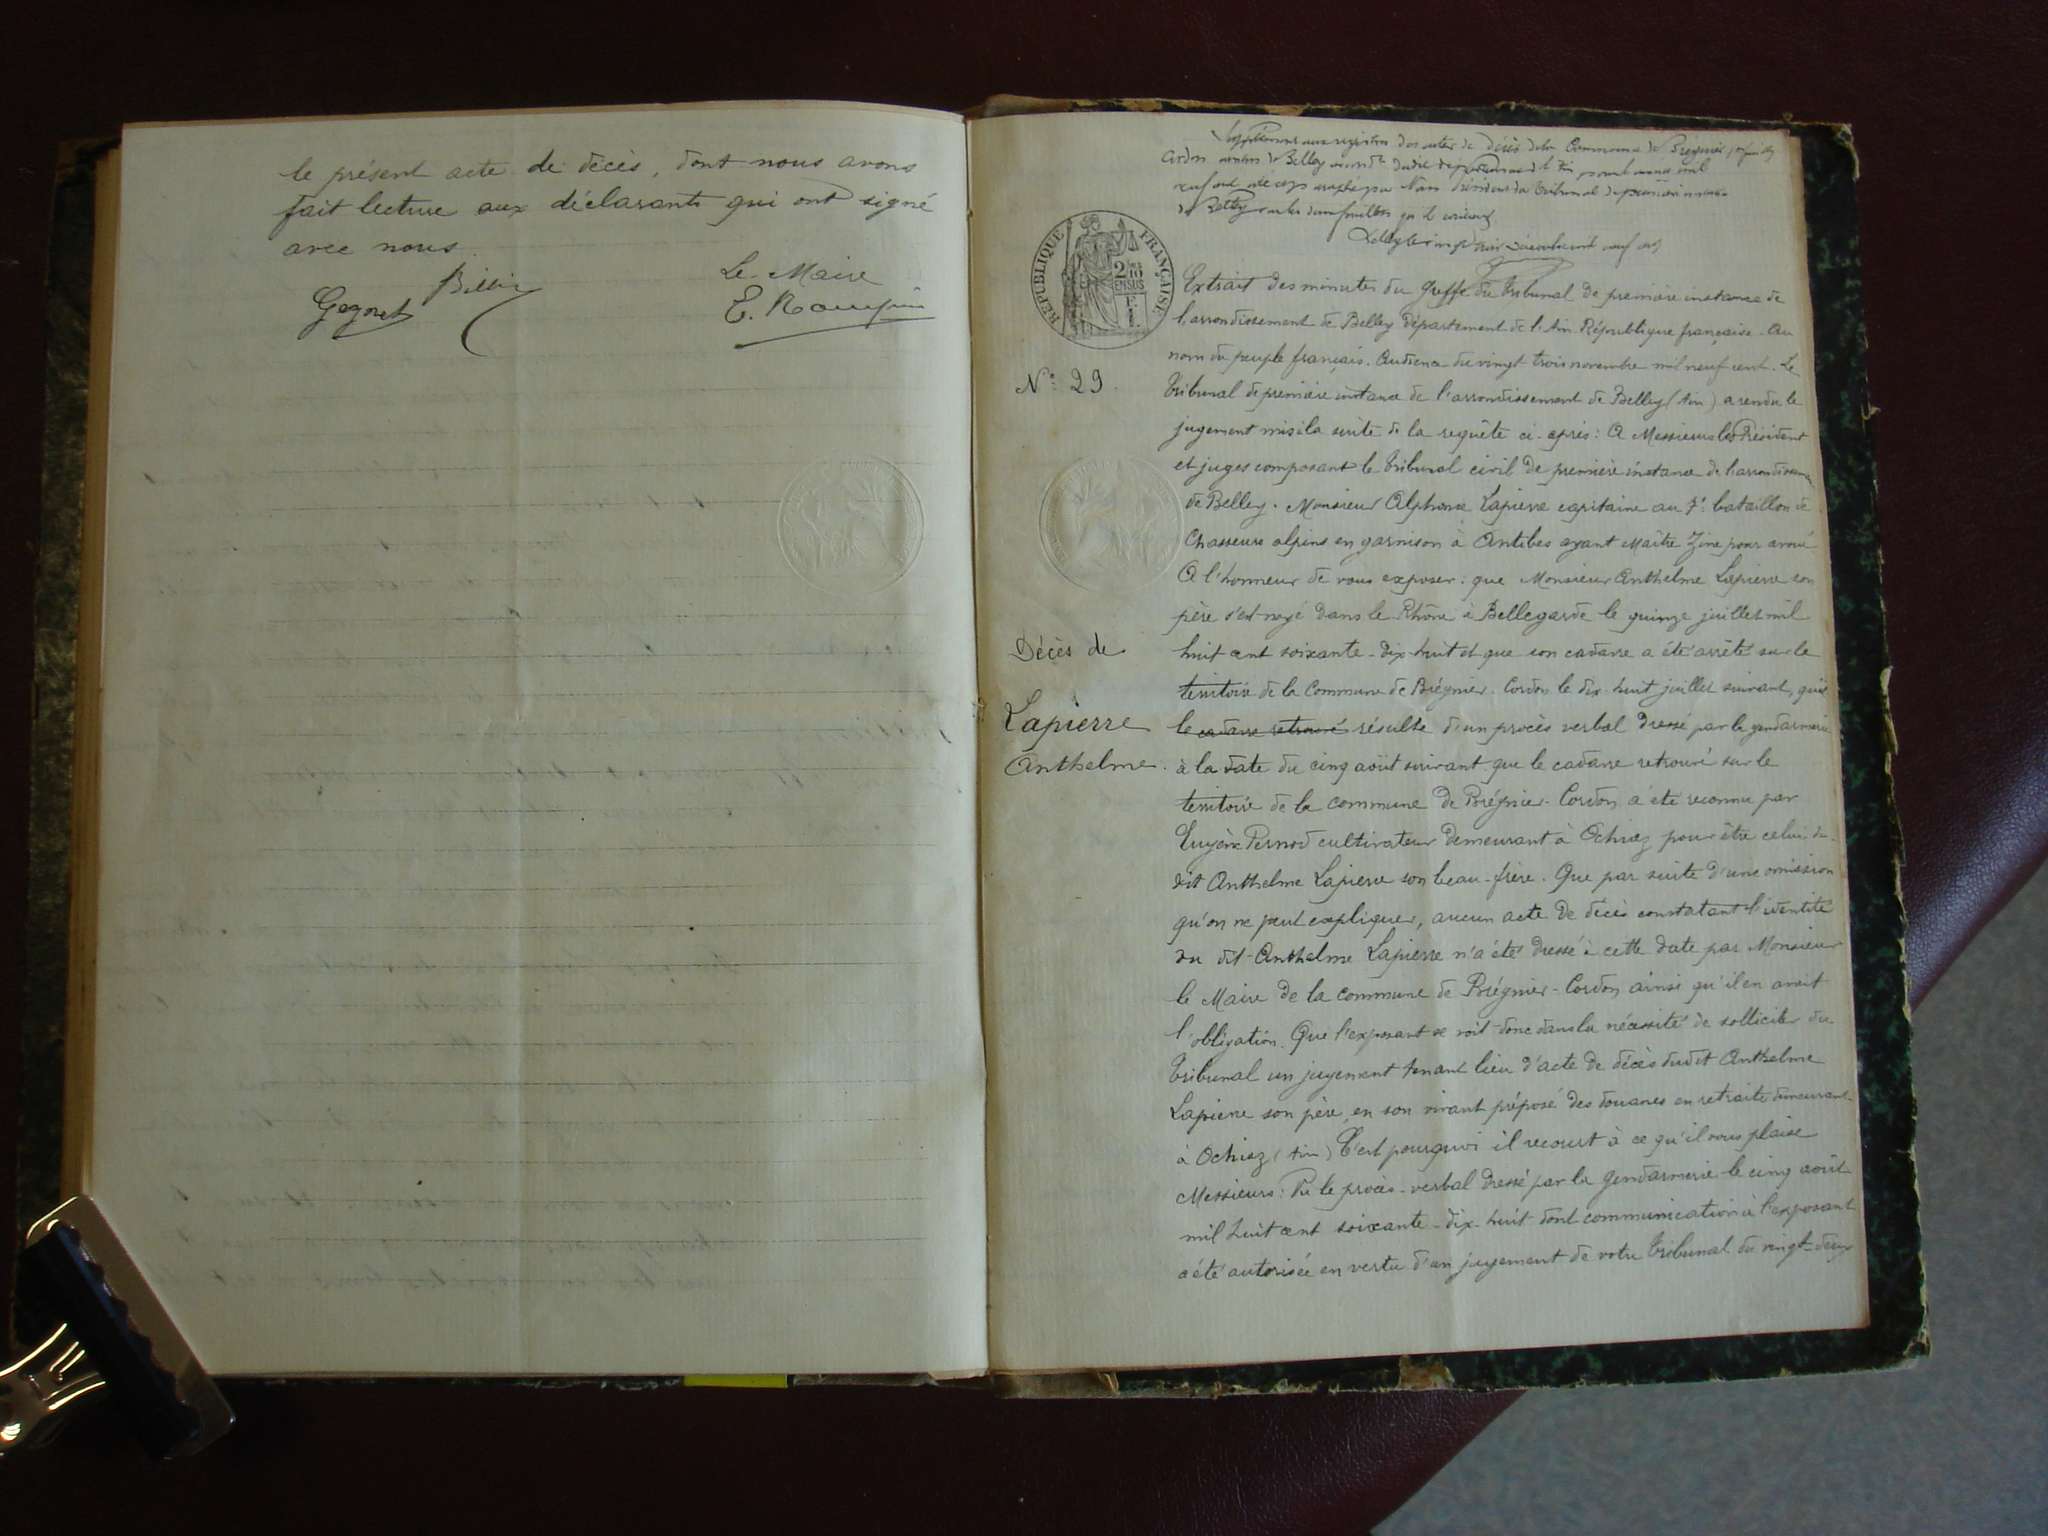 le présent acte de décès, dont nous avons
fait lecture aux déclarants qui ont signé
avec nous.
Le Maire
Billin
Gogonet
E.
aux registres des actes de décès de la Commune de
Belley
Président du tribunal de première
de Belley
RÉPUBLIQUE FRANÇAISE
2/10
EN SUS
Nº 29.
Décès de
Lapierre
Anthelme.
Extrait des minutes du Greffe du Tribunal de première instance de
l'arrondissement de Belley département de l'Ain République française. Au
nom du peuple français. Audience du vingt trois novembre mil neuf cent. Le
Tribunal de première instance de l'arrondissement de Belley (Ain) a rendu le
jugement mis à la suite de la requête ci-après : A Messieurs les Président
et juges composant le Tribunal civil de première instance de l'arrondissement
de Belley. Monsieur Alphonse Lapierre capitaine au 7e bataillon de
Chasseurs alpins en garnison à Antibes ayant Maître Zine pour avoué
A l'honneur de vous exposer : que Monsieur Anthelme Lapierre son
père s'est noyé dans le Rhône à Bellegarde le quinze juillet mil
huit cent soixante-dix-huit et que son cadavre a été arrêté sur le
territoire de la Commune de Brégnier-Cordon le dix-huit juillet suivant, qu'il
le cadavre retrouvé résulte d'un procès verbal dressé par la gendarmerie
à la date du cinq août suivant que le cadavre retrouvé sur le
territoire de la commune de Brégnier-Cordon a été reconnu par
Eugène Pernod cultivateur demeurant à Ochiaz pour être celui du
dit Anthelme Lapierre son beau-frère. Que par suite d'une omission
qu'on ne peut expliquer, aucun acte de décès constatant l'identité
du dit Anthelme Lapierre n'a été dressé à cette date par Monsieur
le Maire de la commune de Brégnier-Cordon ainsi qu'il en avait
l'obligation. Que l'exposant se voit donc dans la nécessité de solliciter du
Tribunal un jugement tenant lieu d'acte de décès dudit Anthelme
Lapierre son père, en son vivant préposé des douanes en retraite demeurant
à Ochiaz (Ain) C'est pourquoi il recourt à ce qu'il vous plaise
Messieurs : Vu le procès-verbal dressé par la gendarmerie le cinq août
mil huit cent soixante-dix-huit dont communication à l'exposant
a été autorisée en vertu d'un jugement de votre Tribunal du vingt-deux